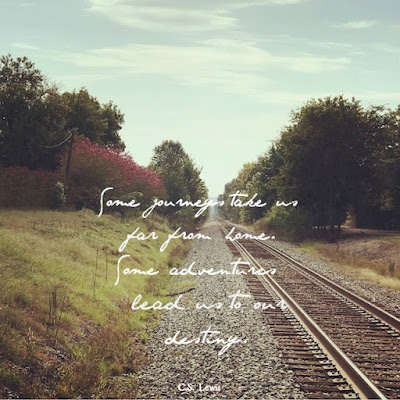 Some journeys take us
far from home.
Some adventures
lead us to our
destiny.
C.S. Lewis